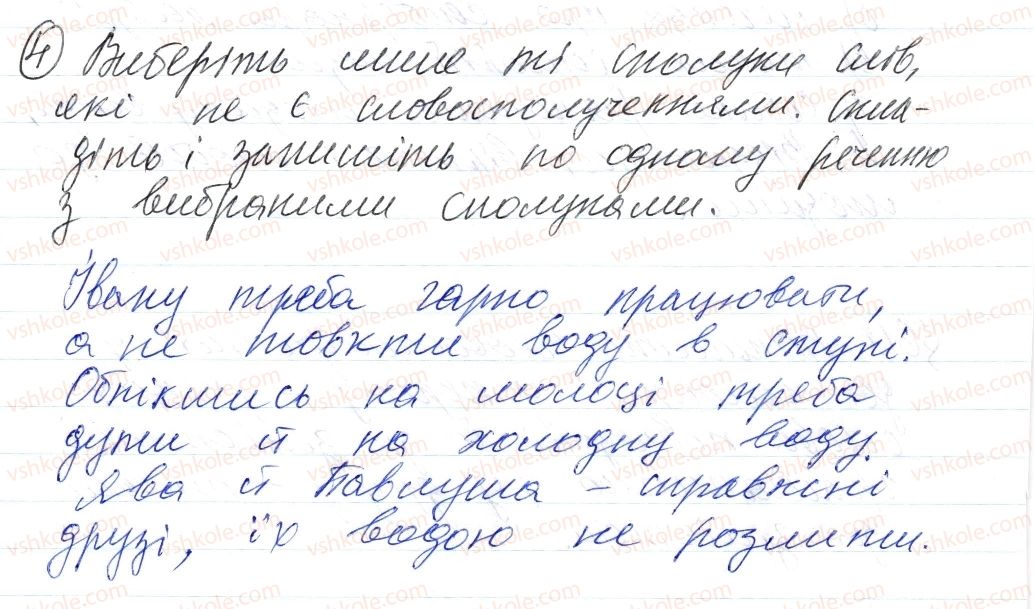 4 Виберіть лише ті сполуки слів,
які не є словосполученнями. Скла-
діть і запишіть по одному реченню
з вибраними сполуками.
Івану треба гарно працювати,
а не товкти воду в ступі.
Обпікшись на молоці треба
дути й на холодну воду.
Ява й Павлуша – справжні
друзі, їх водою не розлити.